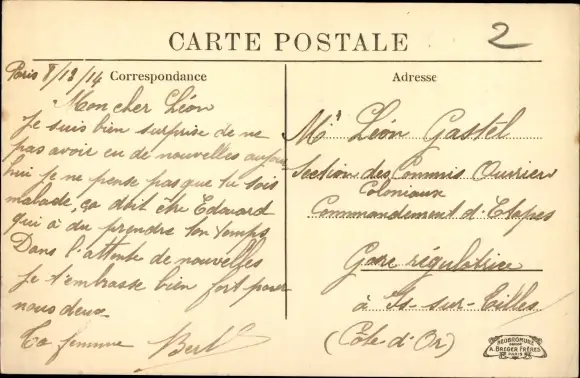 2
CARTE POSTALE
Paris 8/12/14 Correspondance
Mon cher Léon
Je suis bien surprise de ne
pas avoir eu de nouvelles aujour
hui je ne pense pas que tu sois
malade, ça doit être Edouard
qui à du prendre ton temps
Dans l'attente de nouvelles
Je t'embrasse bien fort pour
nous deux
Ta femme Bert
Adresse
Mr Léon Gastel
Section des Commis Ouvriers
Coloniaux
Commandement d'Etapes
Gare régulatrice
à Is-sur-Tilles
(Côte-d'Or)
NEOBROMURE
A. BREGER FRÈRES
PARIS